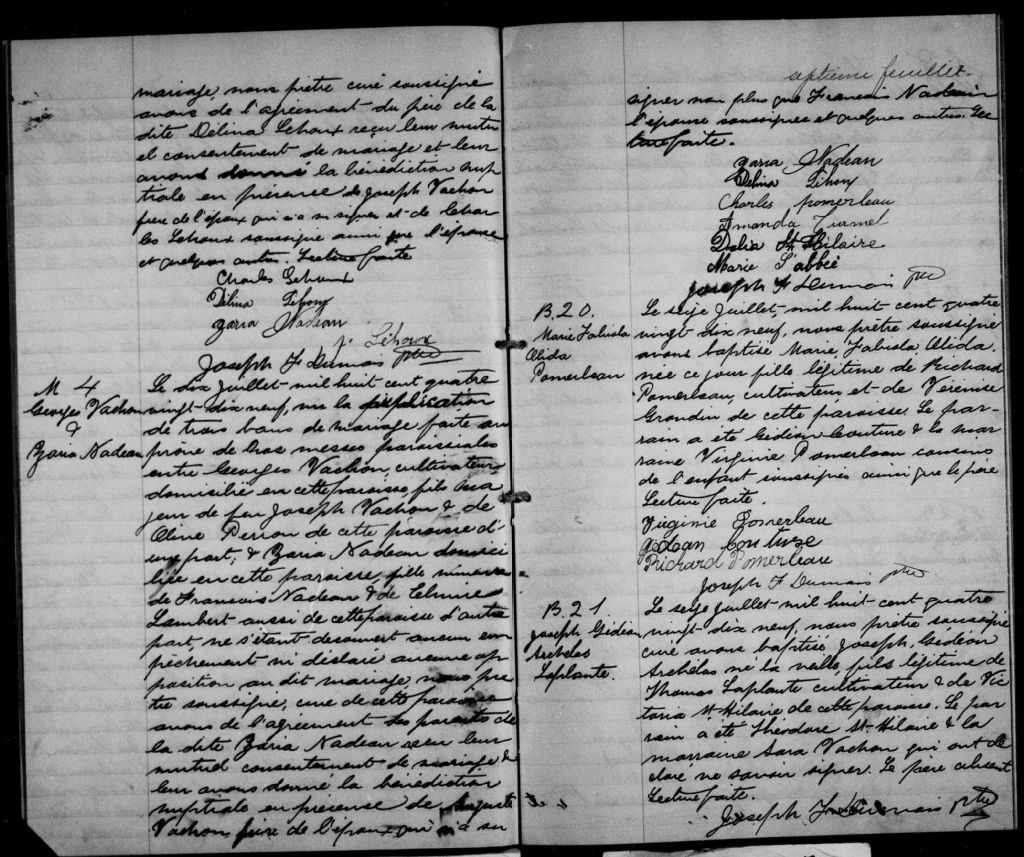 mariage, nous prêtre curé soussigné
avons de l'agrément du père de la
dite Délina Lehoux reçu leur mutu
el consentement de mariage et leur
avons donné la bénédiction nup
tiale en présence de Joseph Vachon
frère de l'époux qui n'a su signer et de Char
les Lehoux soussigné ainsi que l'épouse
et quelques autres. Lecture faite
Charles Lehoux
Délina Lihoux
Zaria Nadeau
J. Lihoux
Joseph F Dumais ptre
M 4
Georges Vachon
&
Zaria Nadeau
Le dix juillet mil huit cent quatre
vingt-dix neuf, vu la publication
de trois bans de mariage faite au
prône de nos messes paroissiales
entre Georges Vachon, cultivateur
domicilié en cette paroisse, fils ma
jeur de feu Joseph Vachon & de
Oline Perron de cette paroisse d'
une part, & Zaria Nadeau domici
liée en cette paroisse, fille mineure
de Francois Nadeau & de
Lambert aussi de cette paroisse d'autre
part, ne s'étant découvert aucun em
pêchement ni déclaré aucune op
position au dit mariage, nous prê
tre soussigné, curé de cette paroisse
avons de l'agrément des parents de
la dite Zaria Nadeau reçu leur
mutuel consentement de mariage &
leur avons donné la bénédiction
nuptiale en présence de Auguste
Vachon frère de l'époux qui n'a su
septième feuillet
signer non plus que Francois Nadeau
l'épouse soussignée et quelques autres. Lec
ture faite.
Zaria Nadeau
Délina Lihoux
Charles Pomerleau
Amanda Turmel
Délia St Hilaire
Marie L'abbé
Joseph F Dumais ptre
B.20.
Marie Fabiola
Alida
Pomerleau
Le seize juillet, mil huit cent quatre
vingt dix neuf, nous prêtre soussigné
avons baptisé Marie, Fabiola, Alida
née ce jour fille légitime de Richard
Pomerleau, cultivateur et de Vérénise
Grondin de cette paroisse. Le par-
rain a été Gédéon Couture & la mar
raine Virginie Pomerleau cousins
de l'enfant soussignés ainsi que le père
Lecture faite.
Virginie Pomerleau
Gédéon Couture
Richard Pomerleau
Joseph F Dumais ptre
B.21.
Joseph Gédéon
Archélas
Laplante.
Le seize juillet mil huit cent quatre
vingt dix neuf, nous prêtre soussigné
curé avons baptisé Joseph, Gédéon
Archélas né la veille, fils légitime de
Thomas Laplante cultivateur & de Vic
toria St-Hilaire de cette paroisse. Le par
rain a été Théodore St-Hilaire & la
marraine Sara Vachon qui ont dé
claré ne savoir signer. Le père absent
Lecture faite.
Joseph F Dumais ptre